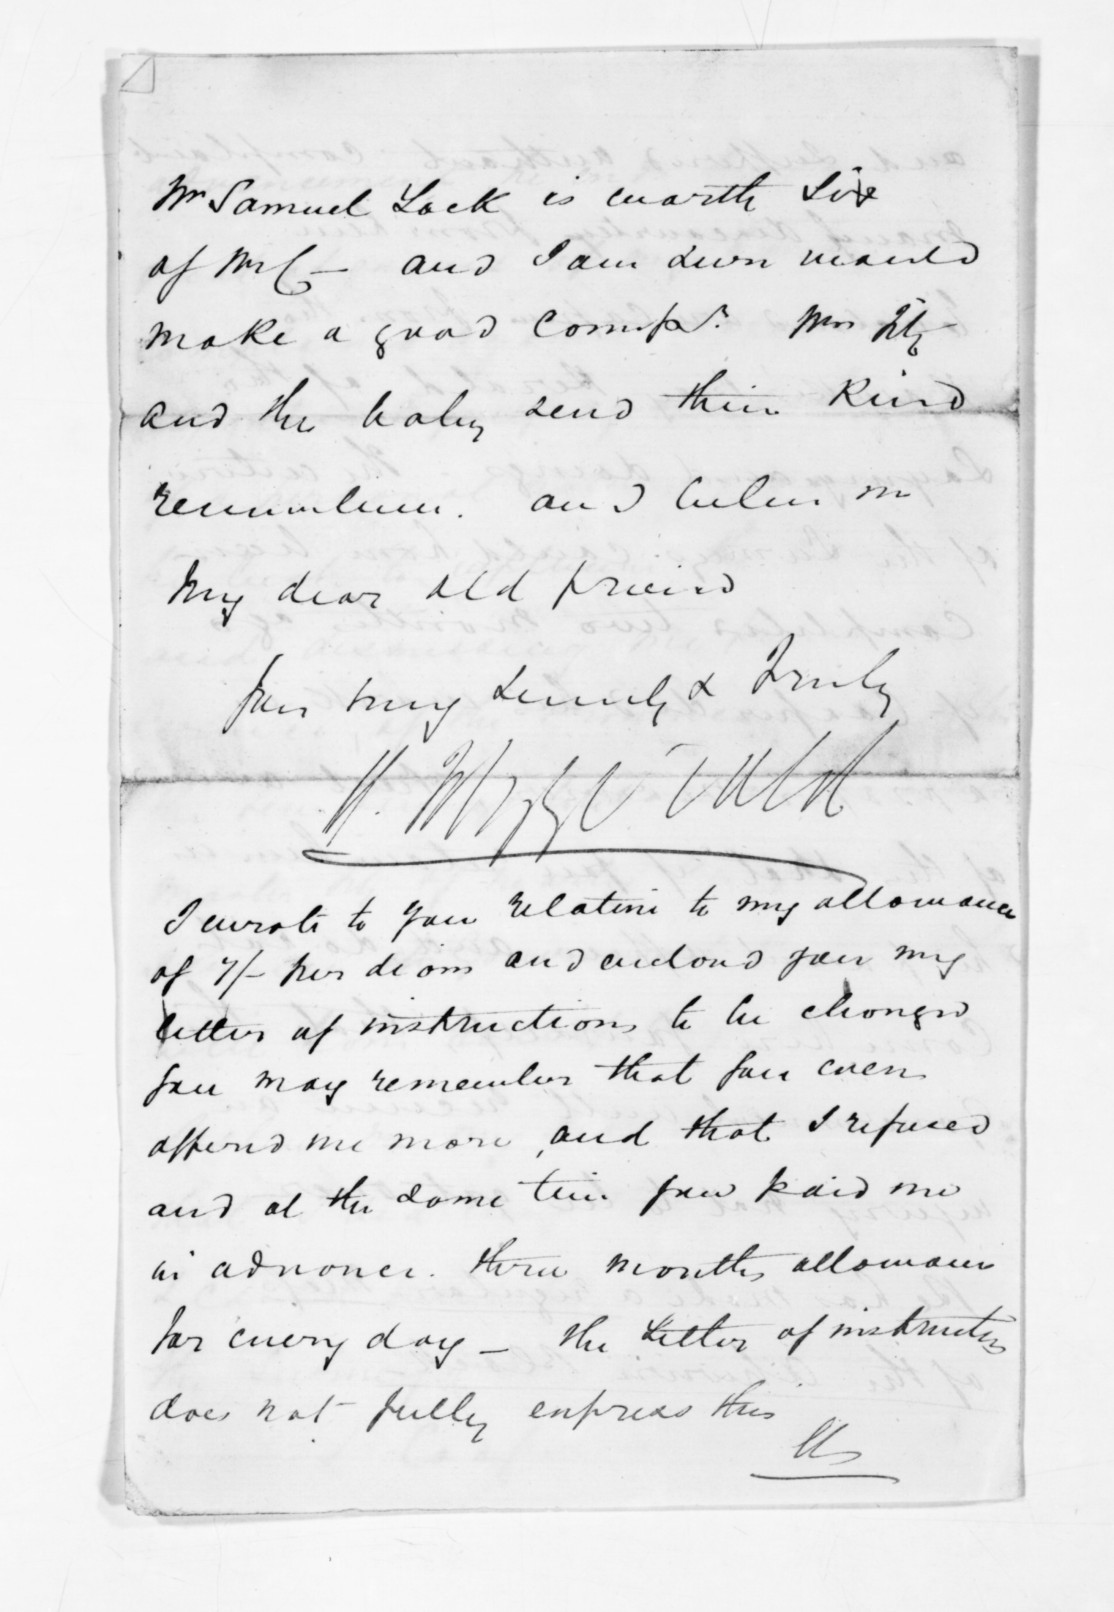 Mr Samuel Lock is worth Six
of Mr C— and I am sure would
make a good Compr. Mrs Fitz
and the baby send their Kind
remembrances. and believe me
My dear old friend
Yours very sincerely & Truly
H. Fitzgerald
I wrote to you relative to my allowance
of 7/- per diem and enclosed you my
letter of instructions to be changed
you may remember that you even
offered me more, and that I refused
and at the same time you paid me
in advance. three months allowance
for every day — the Letter of instructions
does not fully express this